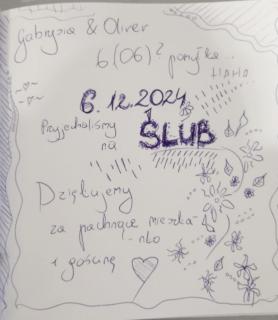 Gabrysia & Oliver
6(06)? pomyłka...
HAHA
6.12.2024
Przyjechaliśmy
na ŚLUB
Dziękujemy
za pachnące mieszka-
-nko
i gościnę